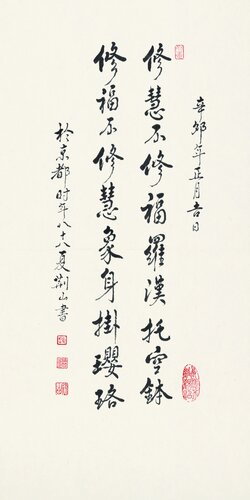 辛卯年正月吉日
修慧不修福羅漢托空鉢
修福不修慧象身掛瓔珞
於京都时年八十八夏荆山書